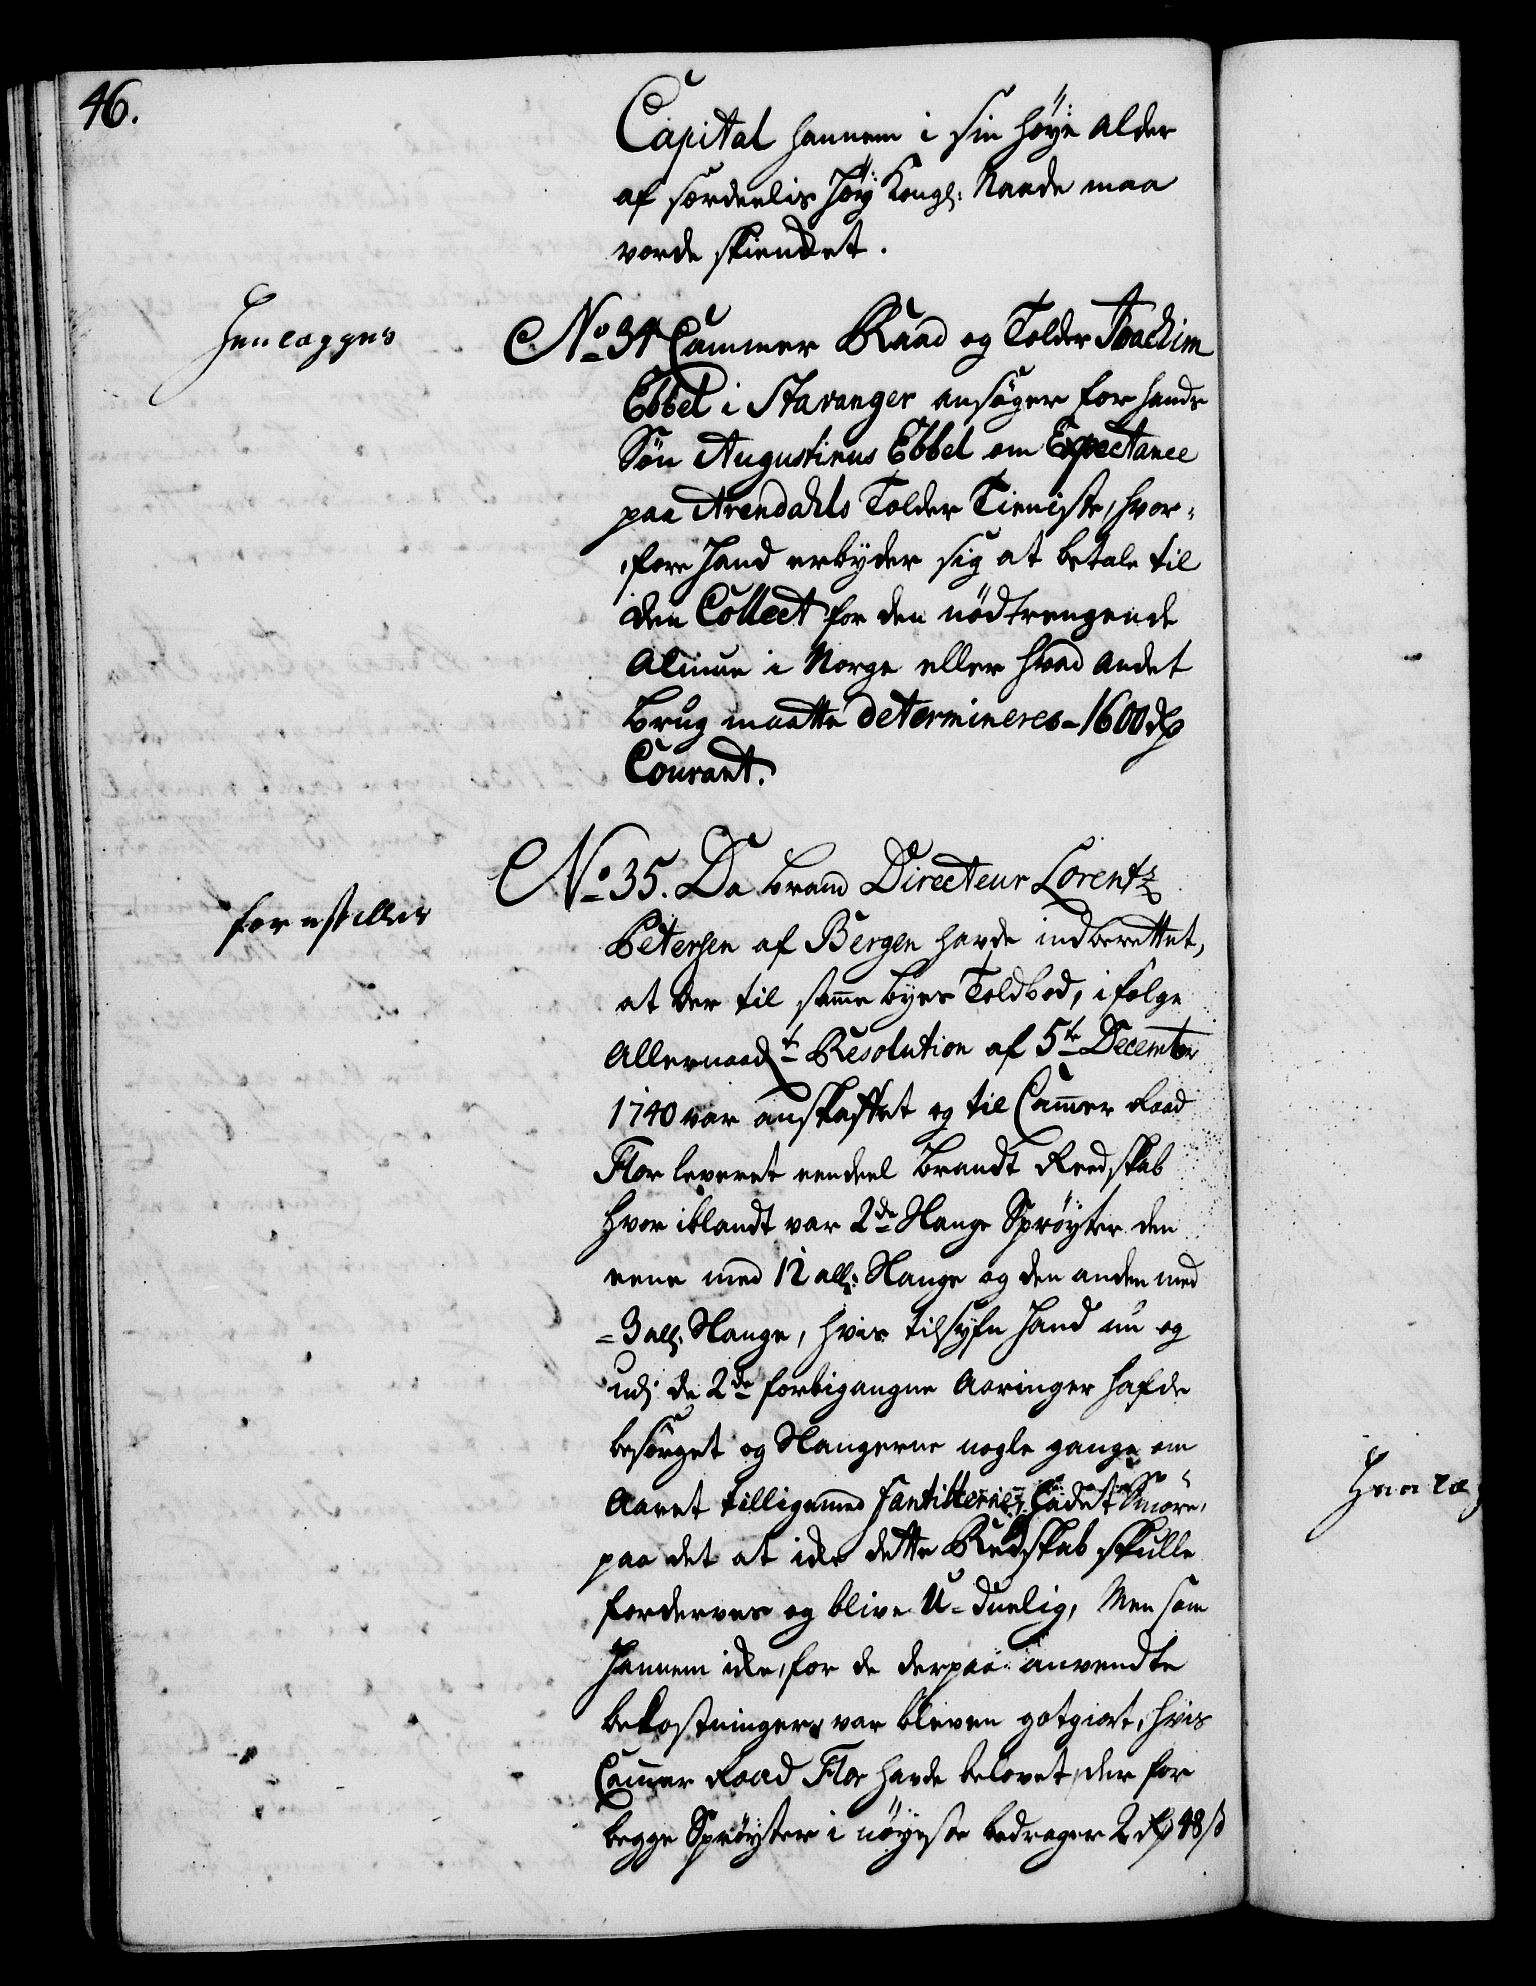 46.
Capital hannem i sin høye Alder
af sordeelis høy Kongl: Naade maa
vorde skienket.
Henlægges
No 34 Cammer Raad og Tolder Joachim
Ebbel i Stavanger ansøger for hands
Søn Augustinus Ebbel om Expectance
paa Arendahls Tolder Tieniste, hvor-
fore hand erbyder sig at betale til
den Collect for den nødtrengende
Almue i Norge eller hvad andet
brug maatte determineres - 1600 rdr
Courant.
forestilles
No 35. Da brand Directeur Lorentz
Petersen af Bergen havde indberettet,
at der til samme byes Toldbod, i følge
Allernaadte Resolution af 5te December
1740 var anskaffet og til Cammer Raad
Flor leveret eendeel brandt Reedskab
hvor iblandt var 2de Slange Sprøyter den
eene med 12 all: Slange og den anden med
- 3 all: Slange, hvis tilsyfn hand nu og
udj de 2de forbigangne Aaringer hafde
besørget og Slangerne nogle gange om
Aaret tilligemed ladet Smøre,
paa det at icke dette Redskab skulle
forderves og blive U-duelig, Men som
hannem icke, for de derpaa anvendte
bekostninger, var bleven gotgiort, hvis
Cammer Raad Flor havde belovet, der for
begge Sprøyter i nøyeste bedrager 2 rdr 48 s
Henlæg